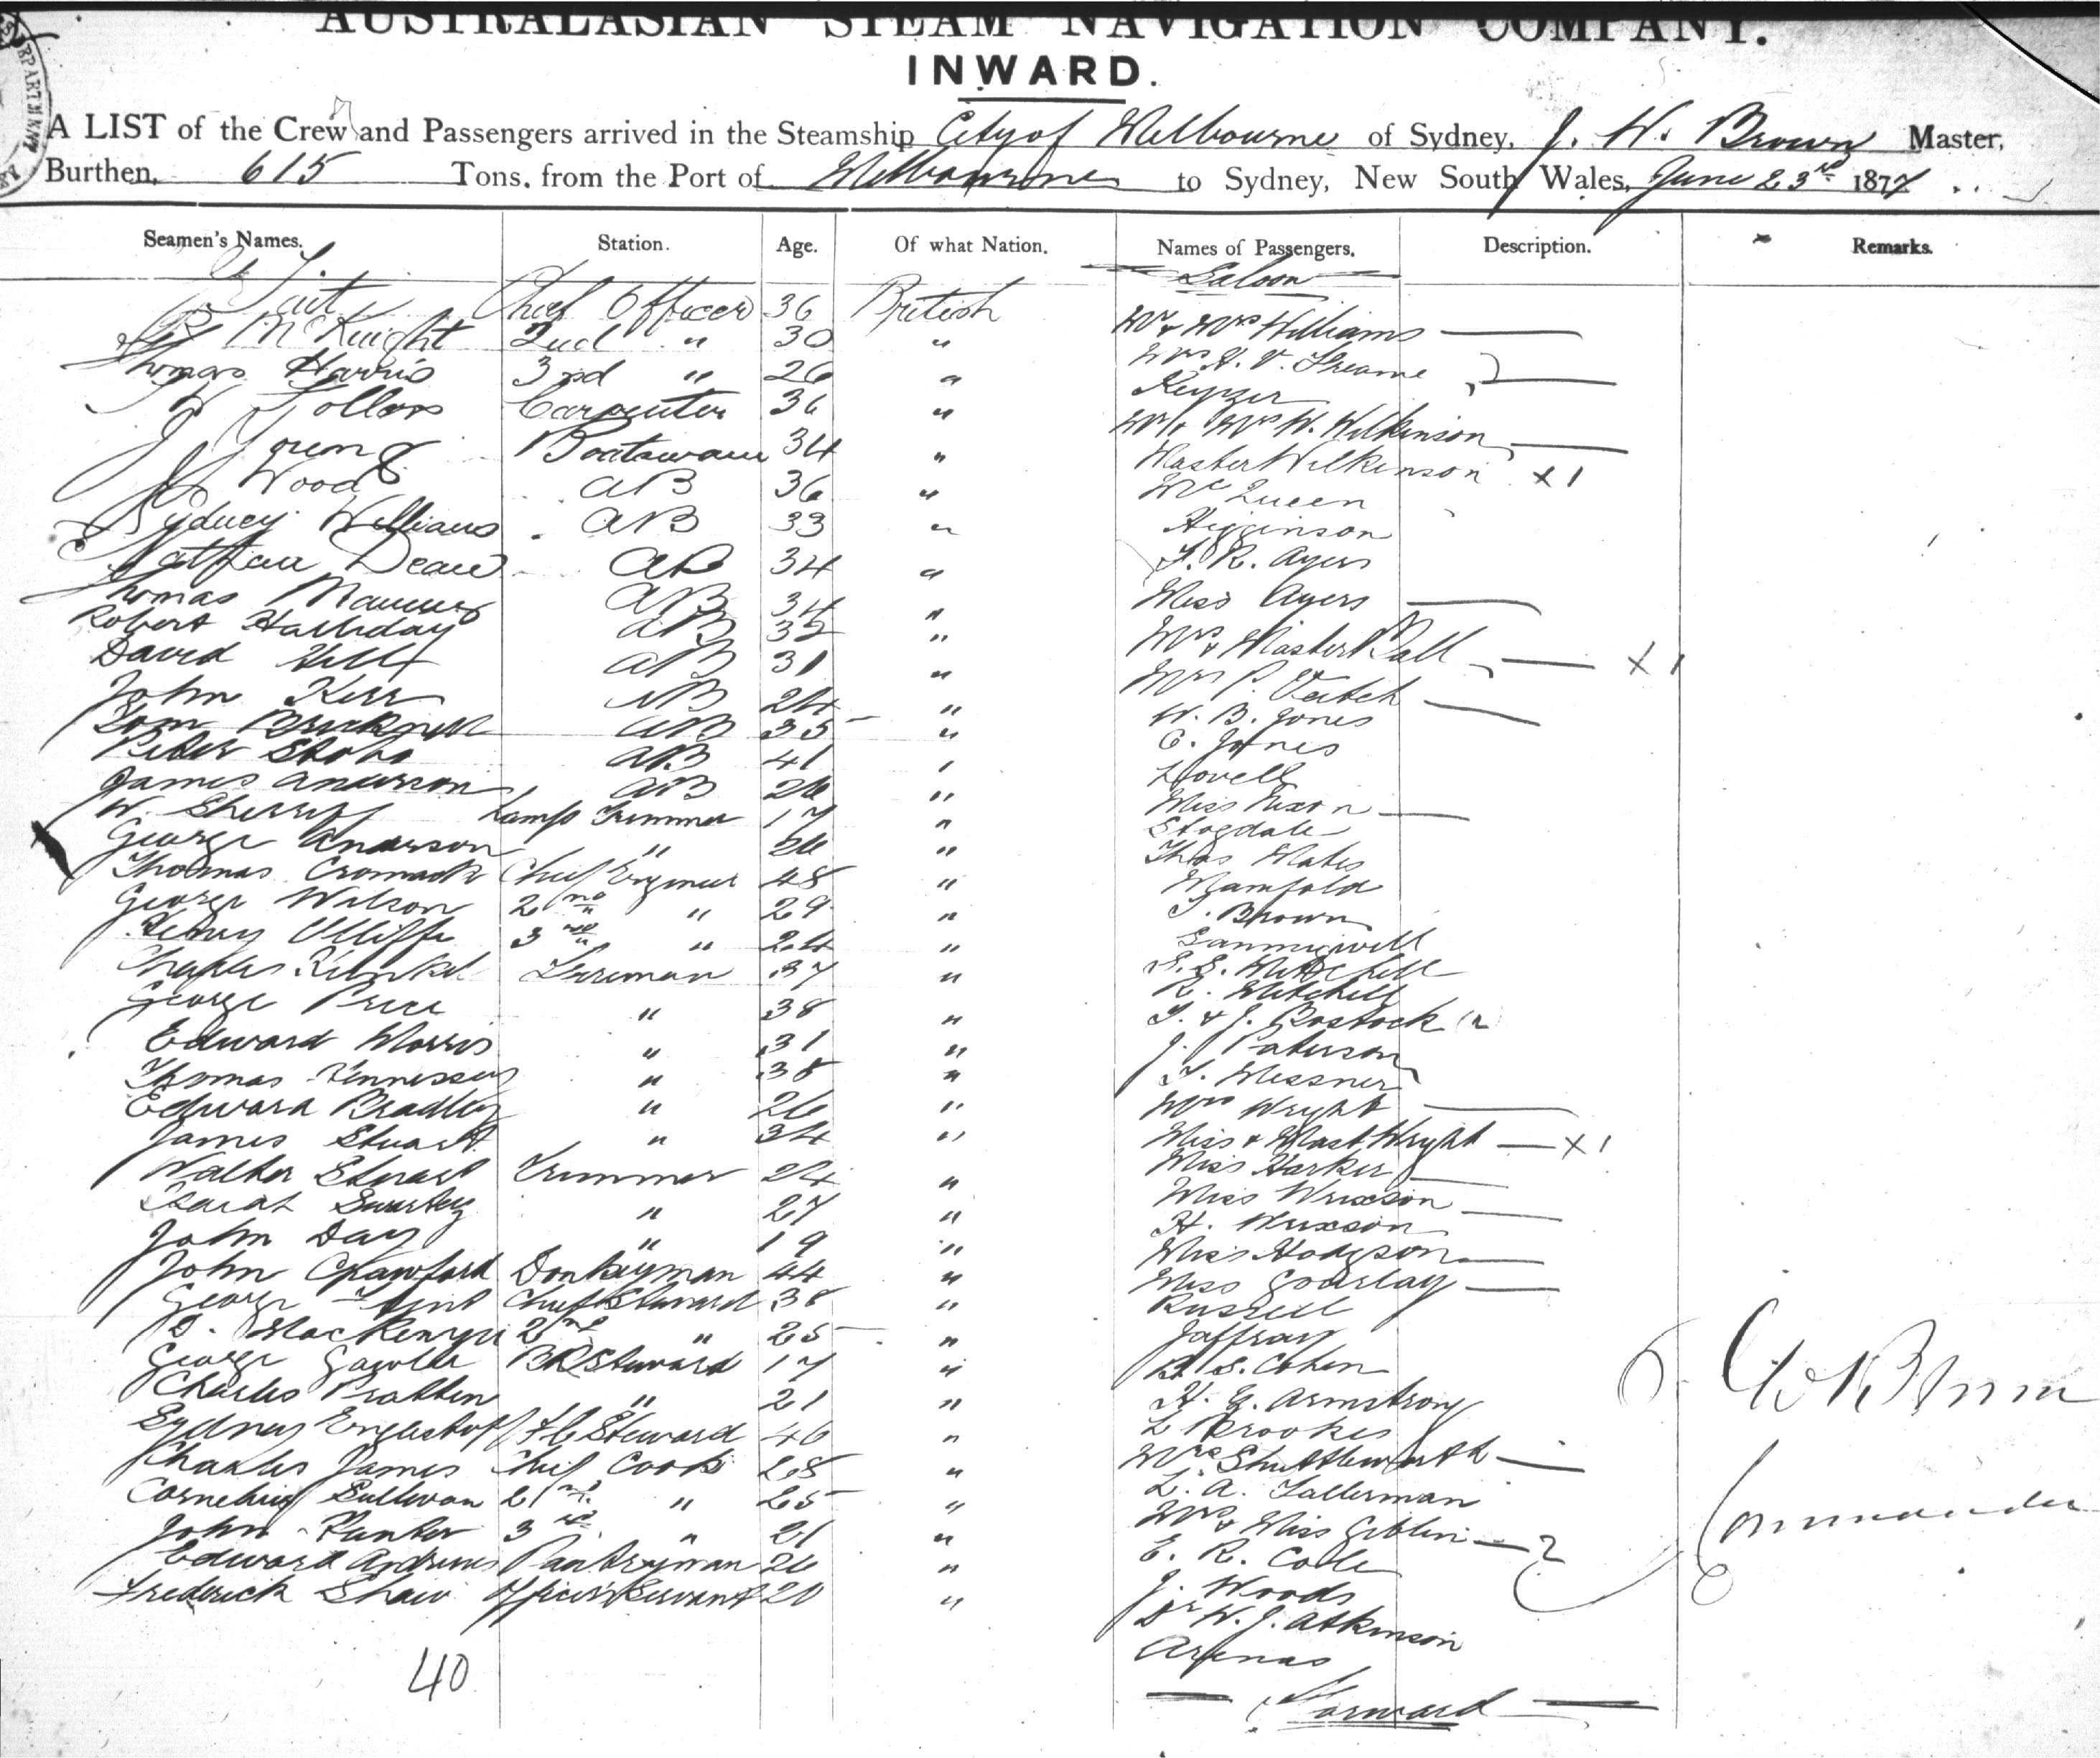 AUSTRALASIAN STEAM NAVIGATION COMPANY.
INWARD.
A LIST of the Crew and Passengers arrived in the Steamship City of Melbourne of Sydney, J. W. Brown Master,
Burthen, 615 Tons, from the Port of Melbourne to Sydney, New South Wales, June 23rd 1877
Seamen's Names. Station. Age. Of what Nation. Names of Passengers. Description. Remarks.
Saloon
Tait Chief Officer 36 British Mr & Mrs Williams
McKnight 2nd " 30 "
Thomas Harris 3rd " 26 " Keyzer
W Carpenter 36 " Mr & Mrs W. Wilkinson
J Young Boatswain 34 " Master Wilkinson x 1
J Wood AB 36 " McQueen
Sydney Williams AB 33 " Higginson
Dean AB 34 " Ayers
Thomas AB 34 " Miss Ayers
Robert Halliday AB 32 " Mrs & Master x 1
David Hill AB 31 " Mrs P. Veitch
John Kerr AB 24 " W. B. Jones
Tom Bricknell AB 35 " C. Jones
Peter AB 41 " Lovell
James Anderson AB 26 " Miss Nixon
W. Sherriff Lamp Trimmer 17 " Stogdale
George Anderson " " Thos
Thomas Cromack Chief Engineer 48 " Bamfold
George Wilson 2nd " 29 " Brown
Henry 3rd " 24 "
Charles Fireman 37 " Mitchell
George Price " 38 " R. Mitchell
Edward Morris " 31 " T. & J. Bostock (2)
Thomas Hennessey " 38 " J. Paterson
Edward Bradley " 26 " Messner
James Stuart " 34 " Mrs Wright
Walter Stuart Trimmer 24 " Miss & Mast Wright x 1
" 27 " Miss Harker
John Day " 19 " Miss Wrixson
John Crawford Donkeyman 44 " H. Wrixson
George Chief Steward 38 " Miss Hodgson
D. MacKenzie 2nd " 25 " Miss Gourlay
George BR Steward 17 " Russell
Charles Pratten " 21 " Jaffray
Sydney Steward 46 " S. Cohen
Charles James Chief Cook 28 " H. G. Armstrong
Cornelius Sullivan 2nd " 25 " L Brookes
John 3rd " 21 " Mrs Shuttleworth
Edward Andrews Pantryman 26 " L. A. Lallerman
Frederick Shaw Officers Servant 20 " Mrs & Miss Giblin 2
E. R. Cole
J. Woods
Dr W. J. Atkinson
40
Forward
J W Brown
Commander